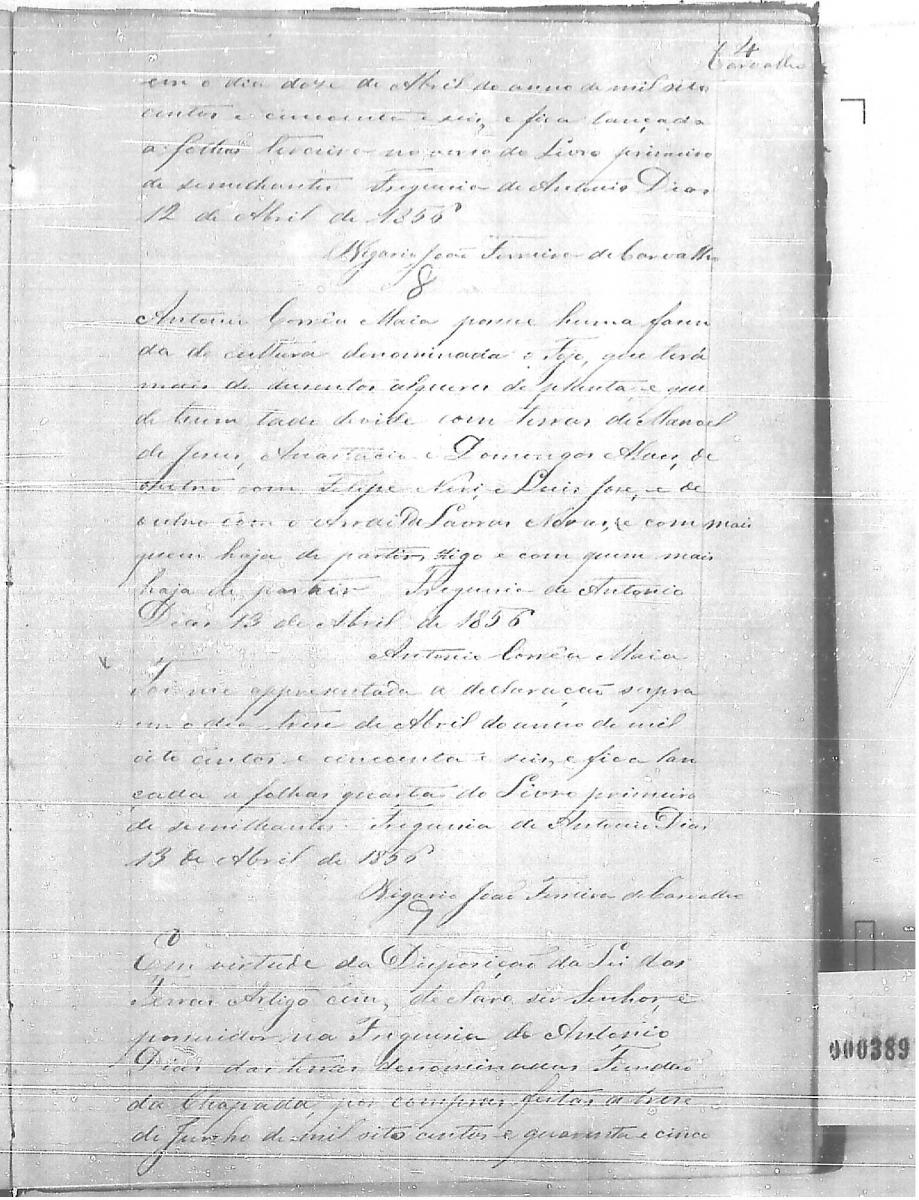 4
Carvalho
em o dia doze de Abril do anno de mil oito
centos e cincoenta e seis, e fica lançada
a folhas terceira no verso do Livro primeiro
de semelhantes Freguesia de Antonio Dias
12 de Abril de 1856
Vigario João Ferreira de Carvalho
8
Antonio Corrêa Maia possue huma fasen
da de cultura denominada o Tejo, que terá
mais de dusentos alqueres de planta, e que
de hum lado devide com terras de Manoel
de Jesus, Anastacio e Domingos Alves, de
outro com Felipe Neri, e Luis José, e de
outro com o Arraial de Lavras Novas, e com mais
quem haja de partir, digo e com quem mais
haja de partir Freguesia de Antonio
Dias 13 de Abril de 1856
Antonio Corrêa Maia
Foi me appresentada a declaração supra
em o dia trese de Abril do anno de mil
oito centos e cincoenta e seis, e fica lan
cada a folhas quarta do Livro primeiro
de semilhantes. Freguesia de Antonio Dias
13 de Abril de 1856
Vigario João Ferreira de Carvalho
9
Em virtude da Disposição da Lei das
Terras Artigo cem, declaro ser Senhor, e
possuidor na Freguesia de Antonio
Dias das terras denominadas Fundão
da Chapada, por compras feitas a trese
de Junho de mil oito centos e quarenta e cinco
000389